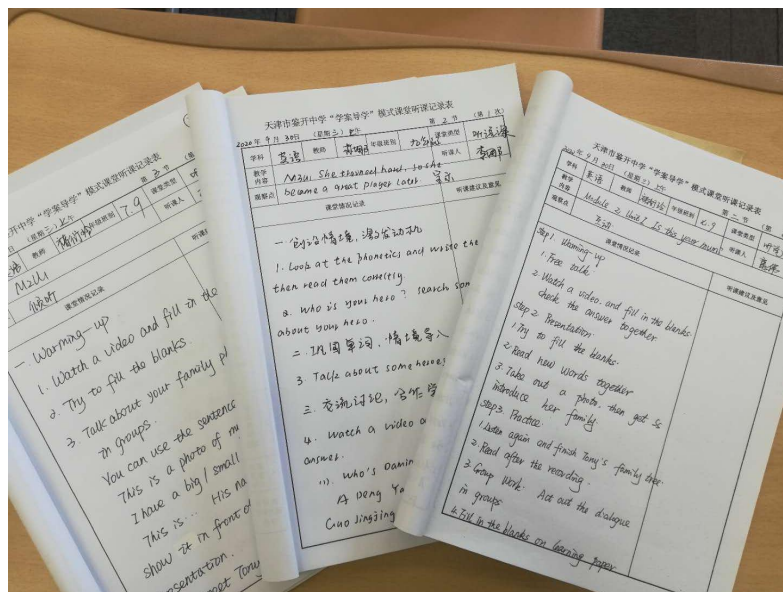 开中学“学案导学”模式课堂听课记录表
(星期三)上午
第2节
教师
年级班别
7.9
课堂类型
听课人
M2U1
倾听
课堂情况记录
一. Warming-up
1. Watch a video and fill in the
2. Try to fill the blanks.
3. Talk about your family
in groups.
You can use the sentence
This is a photo of
I have a big/small
This is... His na
show it in front of
esentation.
天津市鉴开中学“学案导学”模式课堂听课记录表
2020年9月30日 (星期三)上午 第2节 (第1次)
学科 英语 教师 年级班别 课堂类型 听说课
教学内容 M3U1 She trained hard, so she
听课人
观察点 became a great player later.
课堂情况记录 听课建议及意见
一. 创设情境, 激发动机
1. Look at the phonetics and write the
then read them correctly
2. Who is your hero? search som
about your hero.
二. 巩固单词, 情境导入
3. Talk about some heroes
三. 交流讨论, 合作学
4. Watch a video a
answer.
(1). Who's
A Deng Ya
Guo Jingjing
天津市鉴开中学“学案导学”模式课堂听课记录表
2020年9月30日 (星期三)上午 第二节 (第
学科 英语 教师 年级班别 6.9 课堂类型
教学内容 Module 2 Unit 1 Is this your mum? 听课人
观察点 互动
课堂情况记录 听课建议及意见
Step 1. Warming-up
1. Free talk.
2. Watch a video and fill in the blanks.
check the answer together
Step 2. Presentation.
1. Try to fill the blanks.
2. Read new words together
3. Take out a photo, then get Ss
introduce her family.
Step 3. Practice.
1. Listen again and finish Tony's family tree.
2. Read after the recording.
3. Group Work. Act out the dialogue
in groups
4. Fill in the blanks on learning paper